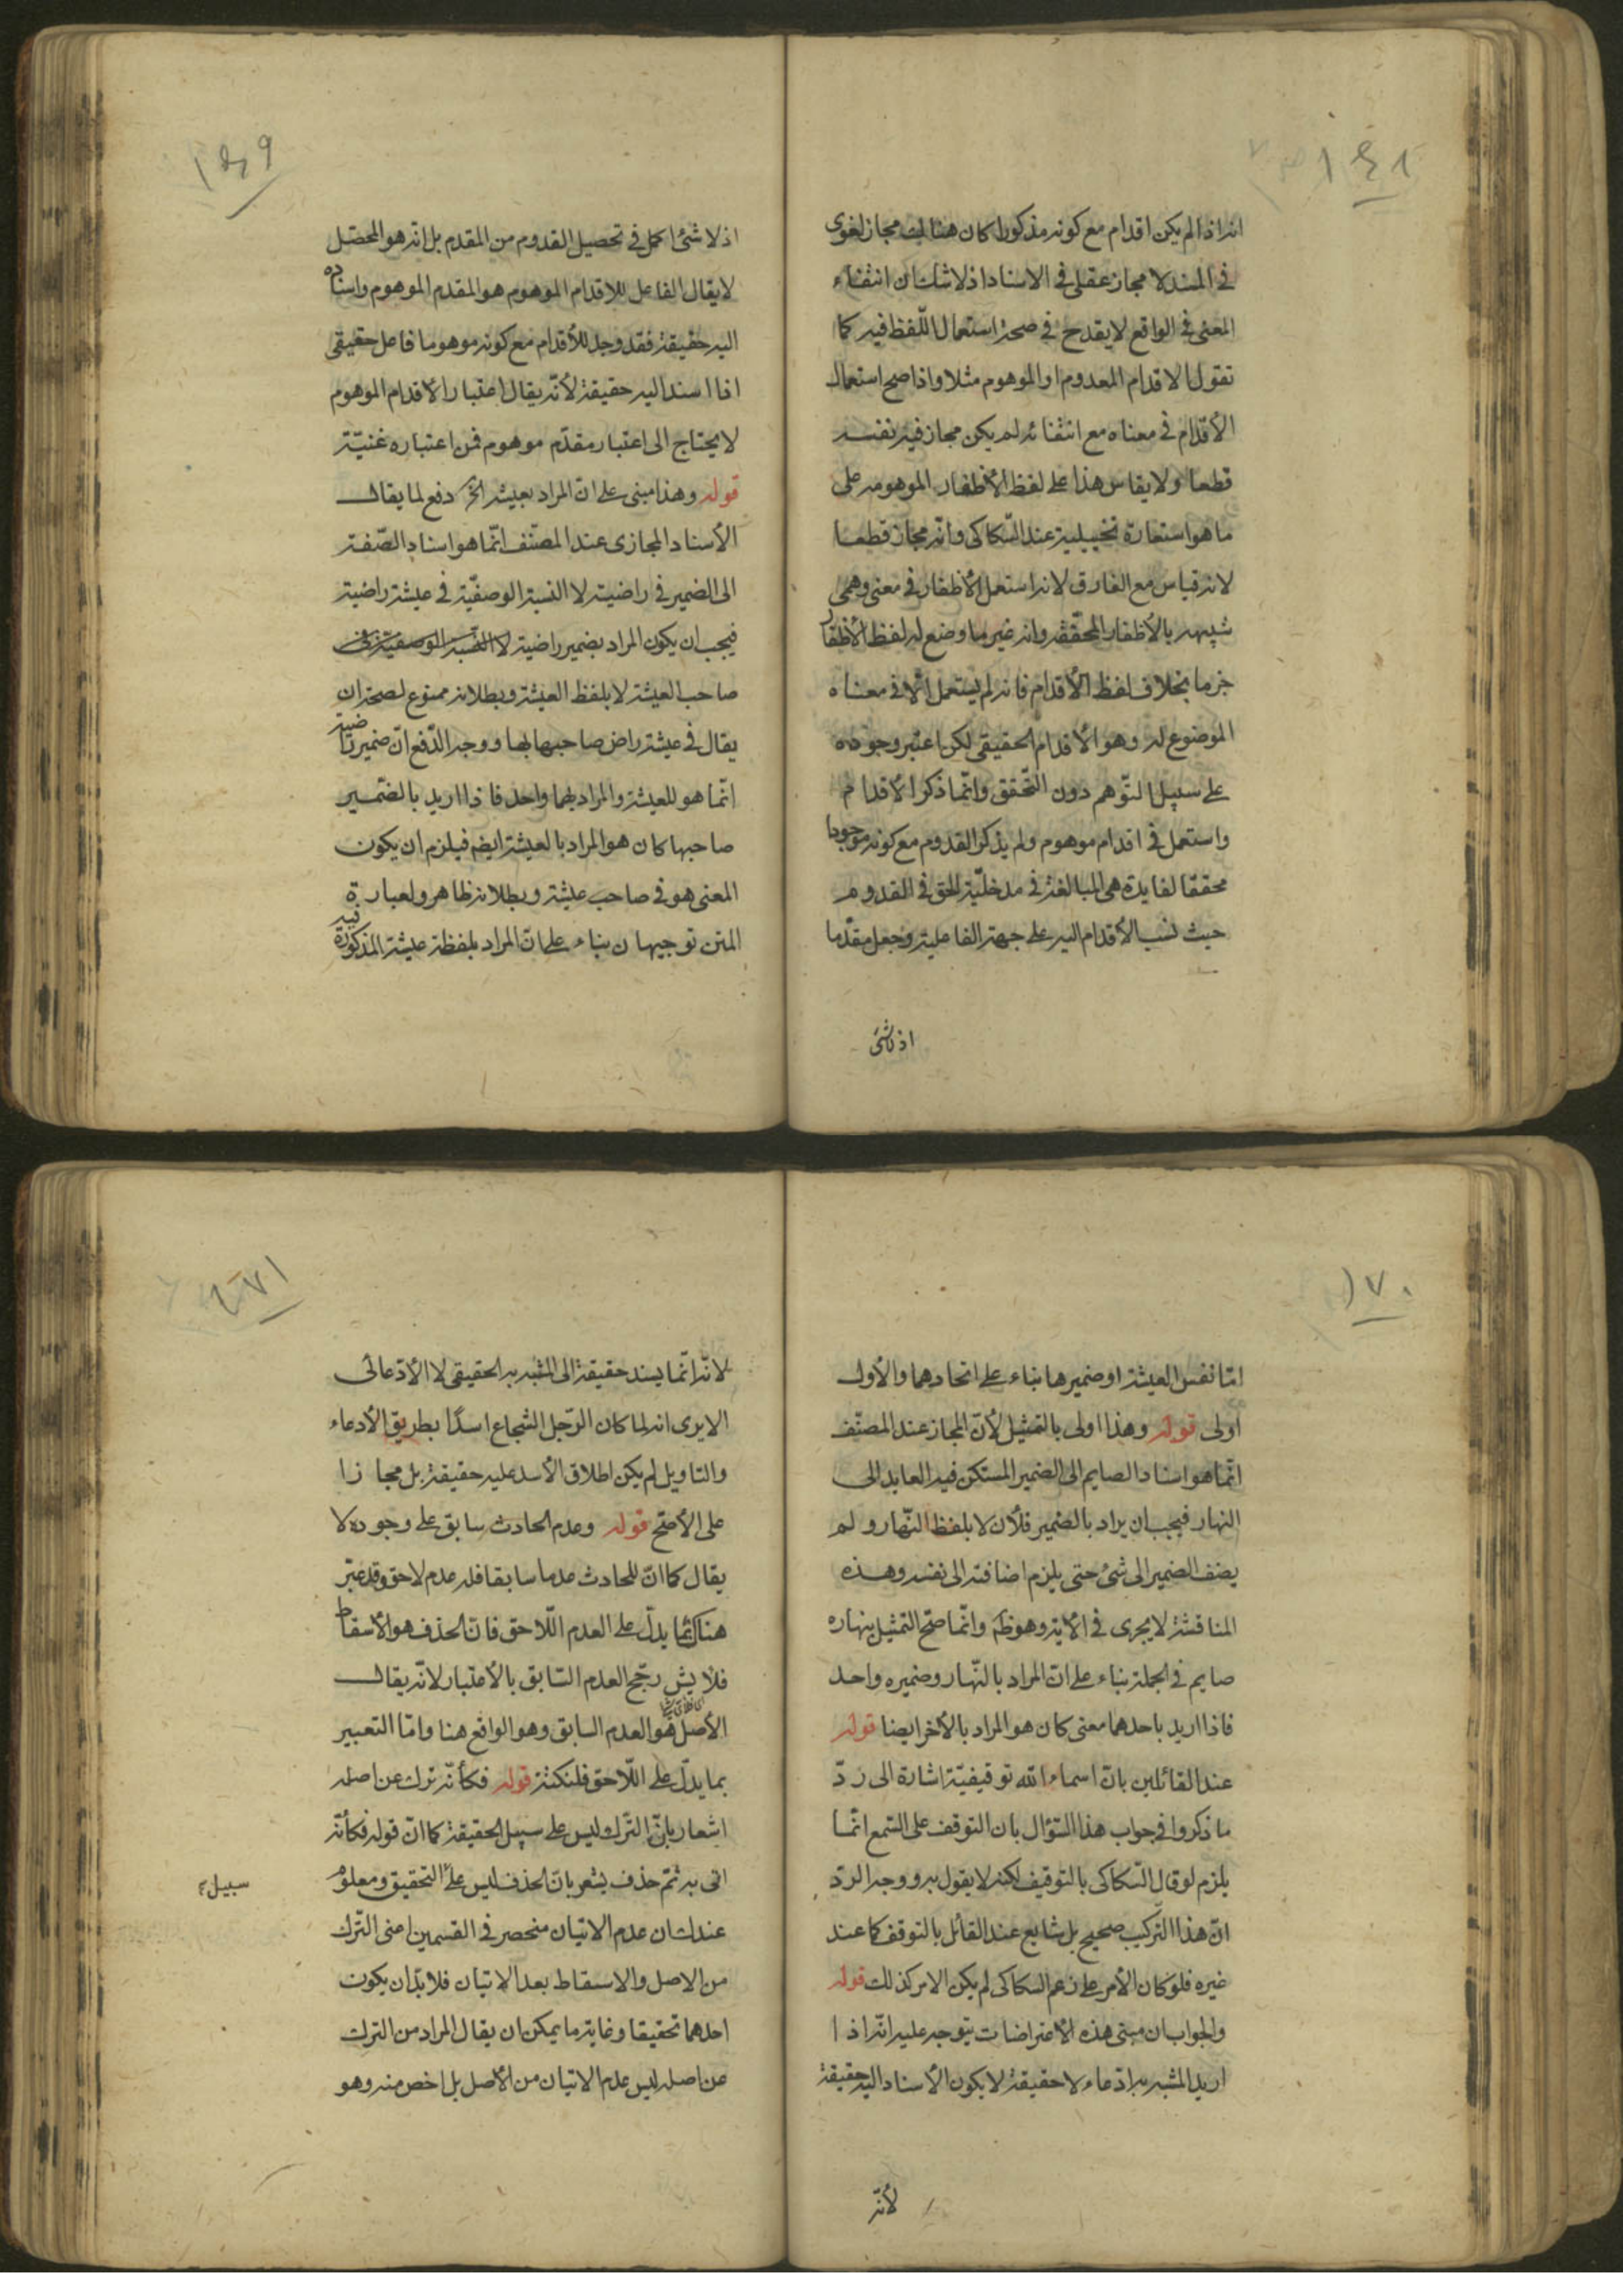 ١٦٨
انه اذا لم يكن اقدام مع كونه مذكورا كان هنالك مجاز لغوى
فى المسند لا مجاز عقلى فى الاسناد اذ لا شك ان انتفاء
المعنى فى الواقع لا يقدح فى صحة استعمال اللّفظ فيه كما
تقول الاقدام المعدوم او الموهوم مثلا واذا صح استعمال
الأقدام فى معناه مع انتفائه لم يكن مجاز فيه نفسه
قطعا ولا يقاس هذا على لفظ الأظفار الموهومه على
ما هو استعارة تخييلية عند السّكاكى وانّه مجاز قطعا
لانه قياس مع الفارق لانه استعمل الأظفار فى معنى وهمى
شبيهه بالأظفار المحقّقه وانه غير ما وضع له لفظ الأظفار
جزما بخلاف لفظ الأقدام فانه لم يستعمل الّا فى معناه
الموضوع له وهو الأقدام الحقيقى لكن اعتبر وجوده
على سبيل التّوهم دون التّحقق وانّما ذكر الأقدام
واستعمل فى اقدام موهوم ولم يذكر القدوم مع كونه موجودا
محققا لفايدة هى المبالغة فى مدخليّة الحق فى القدوم
حيث نسب الأقدام اليه على جهة الفاعلية وجعل مقدّما
اذ لا شئ
١٦٩
اذ لا شئ اكمل فى تحصيل القدوم من المقدم بل انه هو المحصّل
لا يقال الفاعل للاقدام الموهوم هو المقدم الموهوم واسناده
اليه حقيقة فقد وجد للأقدام مع كونه موهوما فاعل حقيقى
اذا اسند اليه حقيقة لأنّه يقال اعتبار الأقدام الموهوم
لا يحتاج الى اعتبار مقدّم موهوم فن اعتباره غنيّة
قوله وهذا مبنى على انّ المراد بعيشه الخ دفع لما يقال
الأسناد المجازى عند المصنّف انّما هو اسناد الصّفة
الى الضمير فى راضية لا النسبة الوصفيّة فى عيشة راضية
فيجب ان يكون المراد بضمير راضية لا النسبة الوصفية فى
صاحب العيشة لا بلفظ العيشة وبطلانه ممنوع لصحة ان
يقال فى عيشة راض صاحبها بها ووجه الدّفع انّ ضمير راضية
انّما هو للعيشة والمراد بهما واحد فاذا اريد بالضّمير
صاحبها كان هو المراد بالعيشة ايضم فيلزم ان يكون
المعنى هو فى صاحب عيشة وبطلانه ظاهر ولعبارة
المتن توجيهان بناء على ان المراد بلفظة عيشة المذكورة فيه
١٧٠
امّا نفس العيشة او ضميرها بناء على اتحادهما والأول
اولى قوله وهذا اولى بالتمثيل لأنّ المجاز عند المصنّف
انّما هو اسناد الصايم الى الضمير المستكن فيه العايد الى
النهار فيجب ان يراد بالضمير فلان لا بلفظ النّهار ولم
يضف الضمير الى شئ حتى يلزم اضافته الى نفسه وهذه
المناقشة لا يجرى فى الأية وهو ظم وانّما صحّ التمثيل بنهاره
صايم فى الجملة بناء على ان المراد بالنّهار وضميره واحد
فاذا اريد باحدهما معنى كان هو المراد بالأخر ايضا قوله
عند القائلين بانّ اسماء الله توقيفيّة اشارة الى ردّ
ما ذكروا فى جواب هذا السّؤال بان التوقف على السّمع انّما
يلزم لو قال السّكاكى بالتوقيف لكنه لا يقول به ووجه الردّ
انّ هذا التّركيب صحيح بل شايع عند القائل بالتوقف كما عند
غيره فلو كان الأمر على زعم السكاكى لم يكن الامر كذلك قوله
والجواب ان مبنى هذه الأعتراضات يتوجه عليه انّه اذا
اريد المشبه به ادّعاء لا حقيقة لا يكون الأسناد اليه حقيقة
لأنّه
١٧١
لانّه انّما يسند حقيقة الى المشبه به الحقيقى لا الأدّعائى
الا يرى انه لما كان الرّجل الشجاع اسدًا بطريق الأدعاء
والتاويل لم يكن اطلاق الأسد عليه حقيقة بل مجازا
على الأصّح قوله وعدم الحادث سابق على وجوده لا
يقال كما انّ للحادث عدما سابقا فله عدم لاحق وقد عبّر
هناك بما يدلّ على العدم اللّاحق فانّ الحذف هو الأسقاط
فلا يش رجّح العدم السّابق بالأعتبار لانّه يقال
الأصل هو العدم السابق وهو الواقع هنا وامّا التعبير
بما يدلّ على اللّاحق فلنكتة قوله فكأنّه ترك عن اصله
اشعار بانّ التّرك ليس على سبيل الحقيقة كما انّ قوله فكأنّه
اتى به ثمّ حذف يشعر بانّ الحذف ليس على التحقيق ومعلوم
سبيل
عندك ان عدم الاتيان منحصر فى القسمين اعنى التّرك
من الاصل والاسقاط بعد الاتيان فلا بدّ ان يكون
احدهما تحقيقا وغاية ما يمكن ان يقال المراد من الترك
عن اصله ليس عدم الاتيان من الأصل بل اخص منه وهو